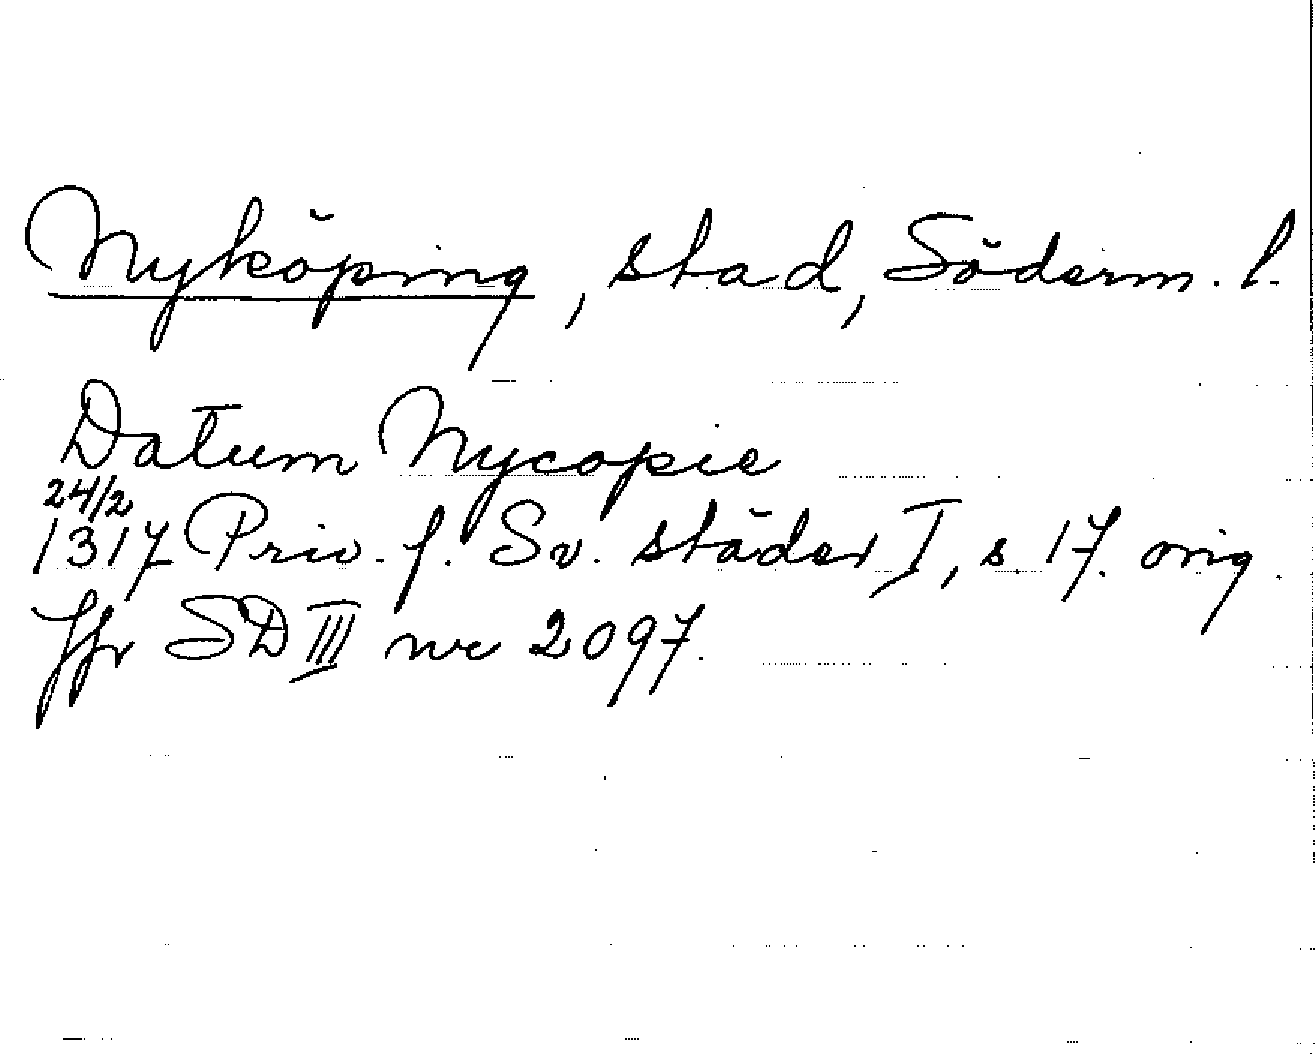 Nyköping, stad, Söderm. l.
Datum Nycopie
24/2
1317 Priv. f. Sv. städer I, s 17. orig.
Jfr SD III nr 2097.